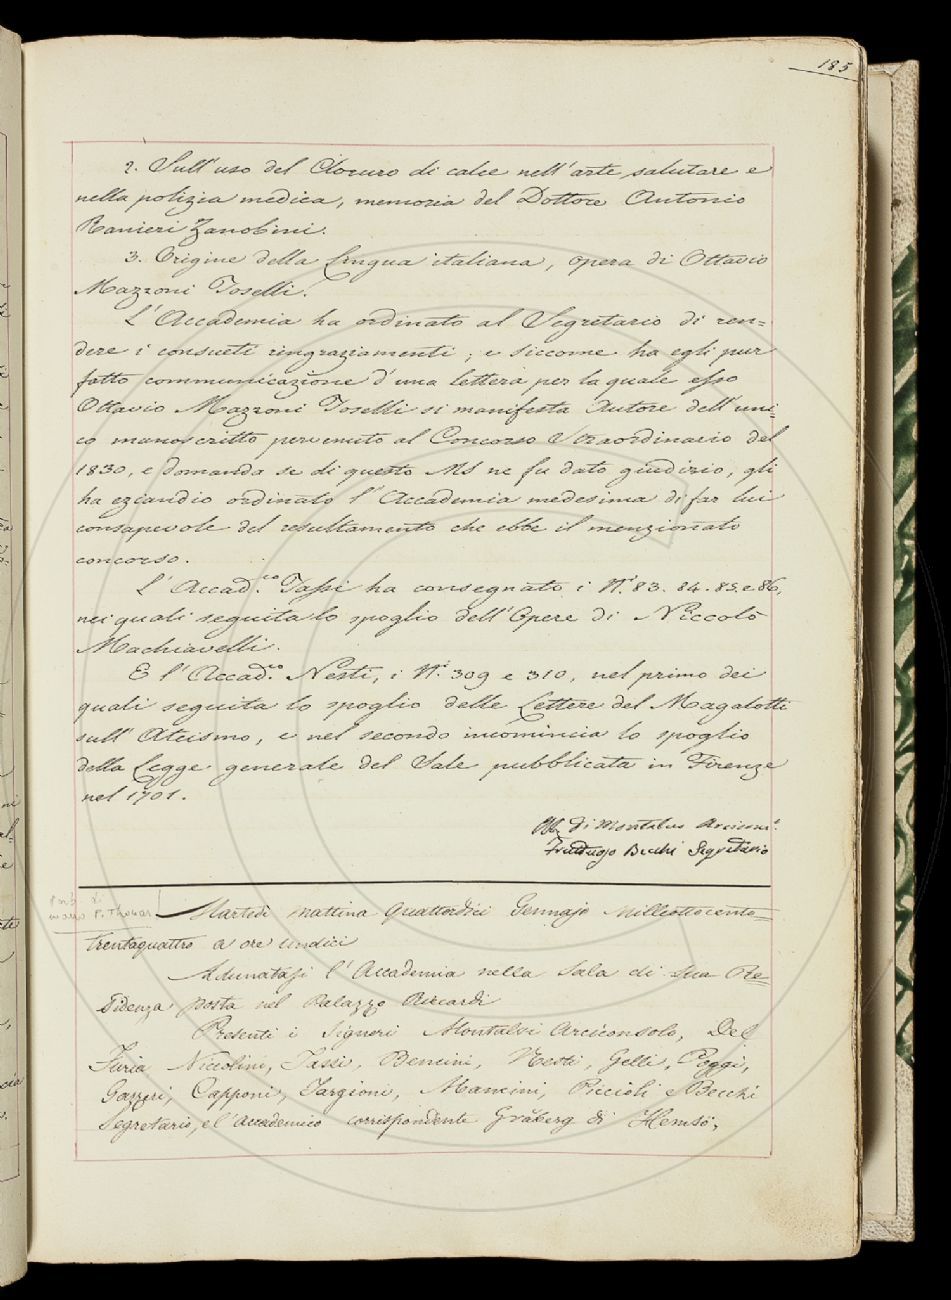 185
2. Sull'uso del Cloruro di calce nell'arte salutare e
nella polizia medica, memoria del Dottore Antonio
Ranieri Zanobini.
3. Origine della lingua italiana, opera di Ottavio
Mazzoni Toselli.
L'Accademia ha ordinato al Segretario di ren=
dere i consueti ringraziamenti; e siccome ha egli pur
fatto communicazione d'una lettera per la quale esso
Ottavio Mazzoni Toselli si manifesta Autore dell'uni=
co manoscritto pervenuto al Concorso Straordinario del
1830, e domanda se di questo MS ne fu dato giudizio, gli
ha eziandio ordinato l'Accademia medesima di far lui
consapevole del resultamento che ebbe il menzionato
concorso.
L'Accad.co Tassi ha consegnato i N.i 83. 84. 85. e 86,
nei quali seguita lo spoglio dell'Opere di Niccolò
Machiavelli.
E l'Accad.co Nesti, i N.i 309 e 310, nel primo dei
quali seguita lo spoglio delle Lettere del Magalotti
sull'Ateismo, e nel secondo incomincia lo spoglio
della Legge generale del Sale pubblicata in Firenze
nel 1701.
di Montalvo Arcicons.o
Fruttuoso Becchi Segretario
P. Thouar
Martedì mattina quattordici Gennajo Milleottocento=
trentaquattro a ore undici
Adunatasi l'Accademia nella Sala di sua Re=
sidenza posta nel Palazzo Riccardi
Presenti i Signori Montalvi Arciconsolo, Del
Furia Niccolini, Tassi, Bencini, Nesti, Gelli, Poggi,
Gazzeri, Capponi, Targioni, Mancini, Piccioli e Becchi
Segretario, e l'Accademico corrispondente Gråberg di Hemsö,